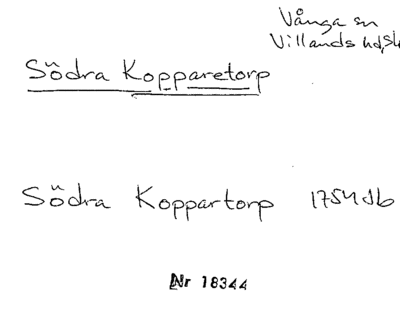 Vånga sn
Villands hd, Sk
Södra Kopparetorp
Södra Koppartorp 1754 Jb
Nr 18344